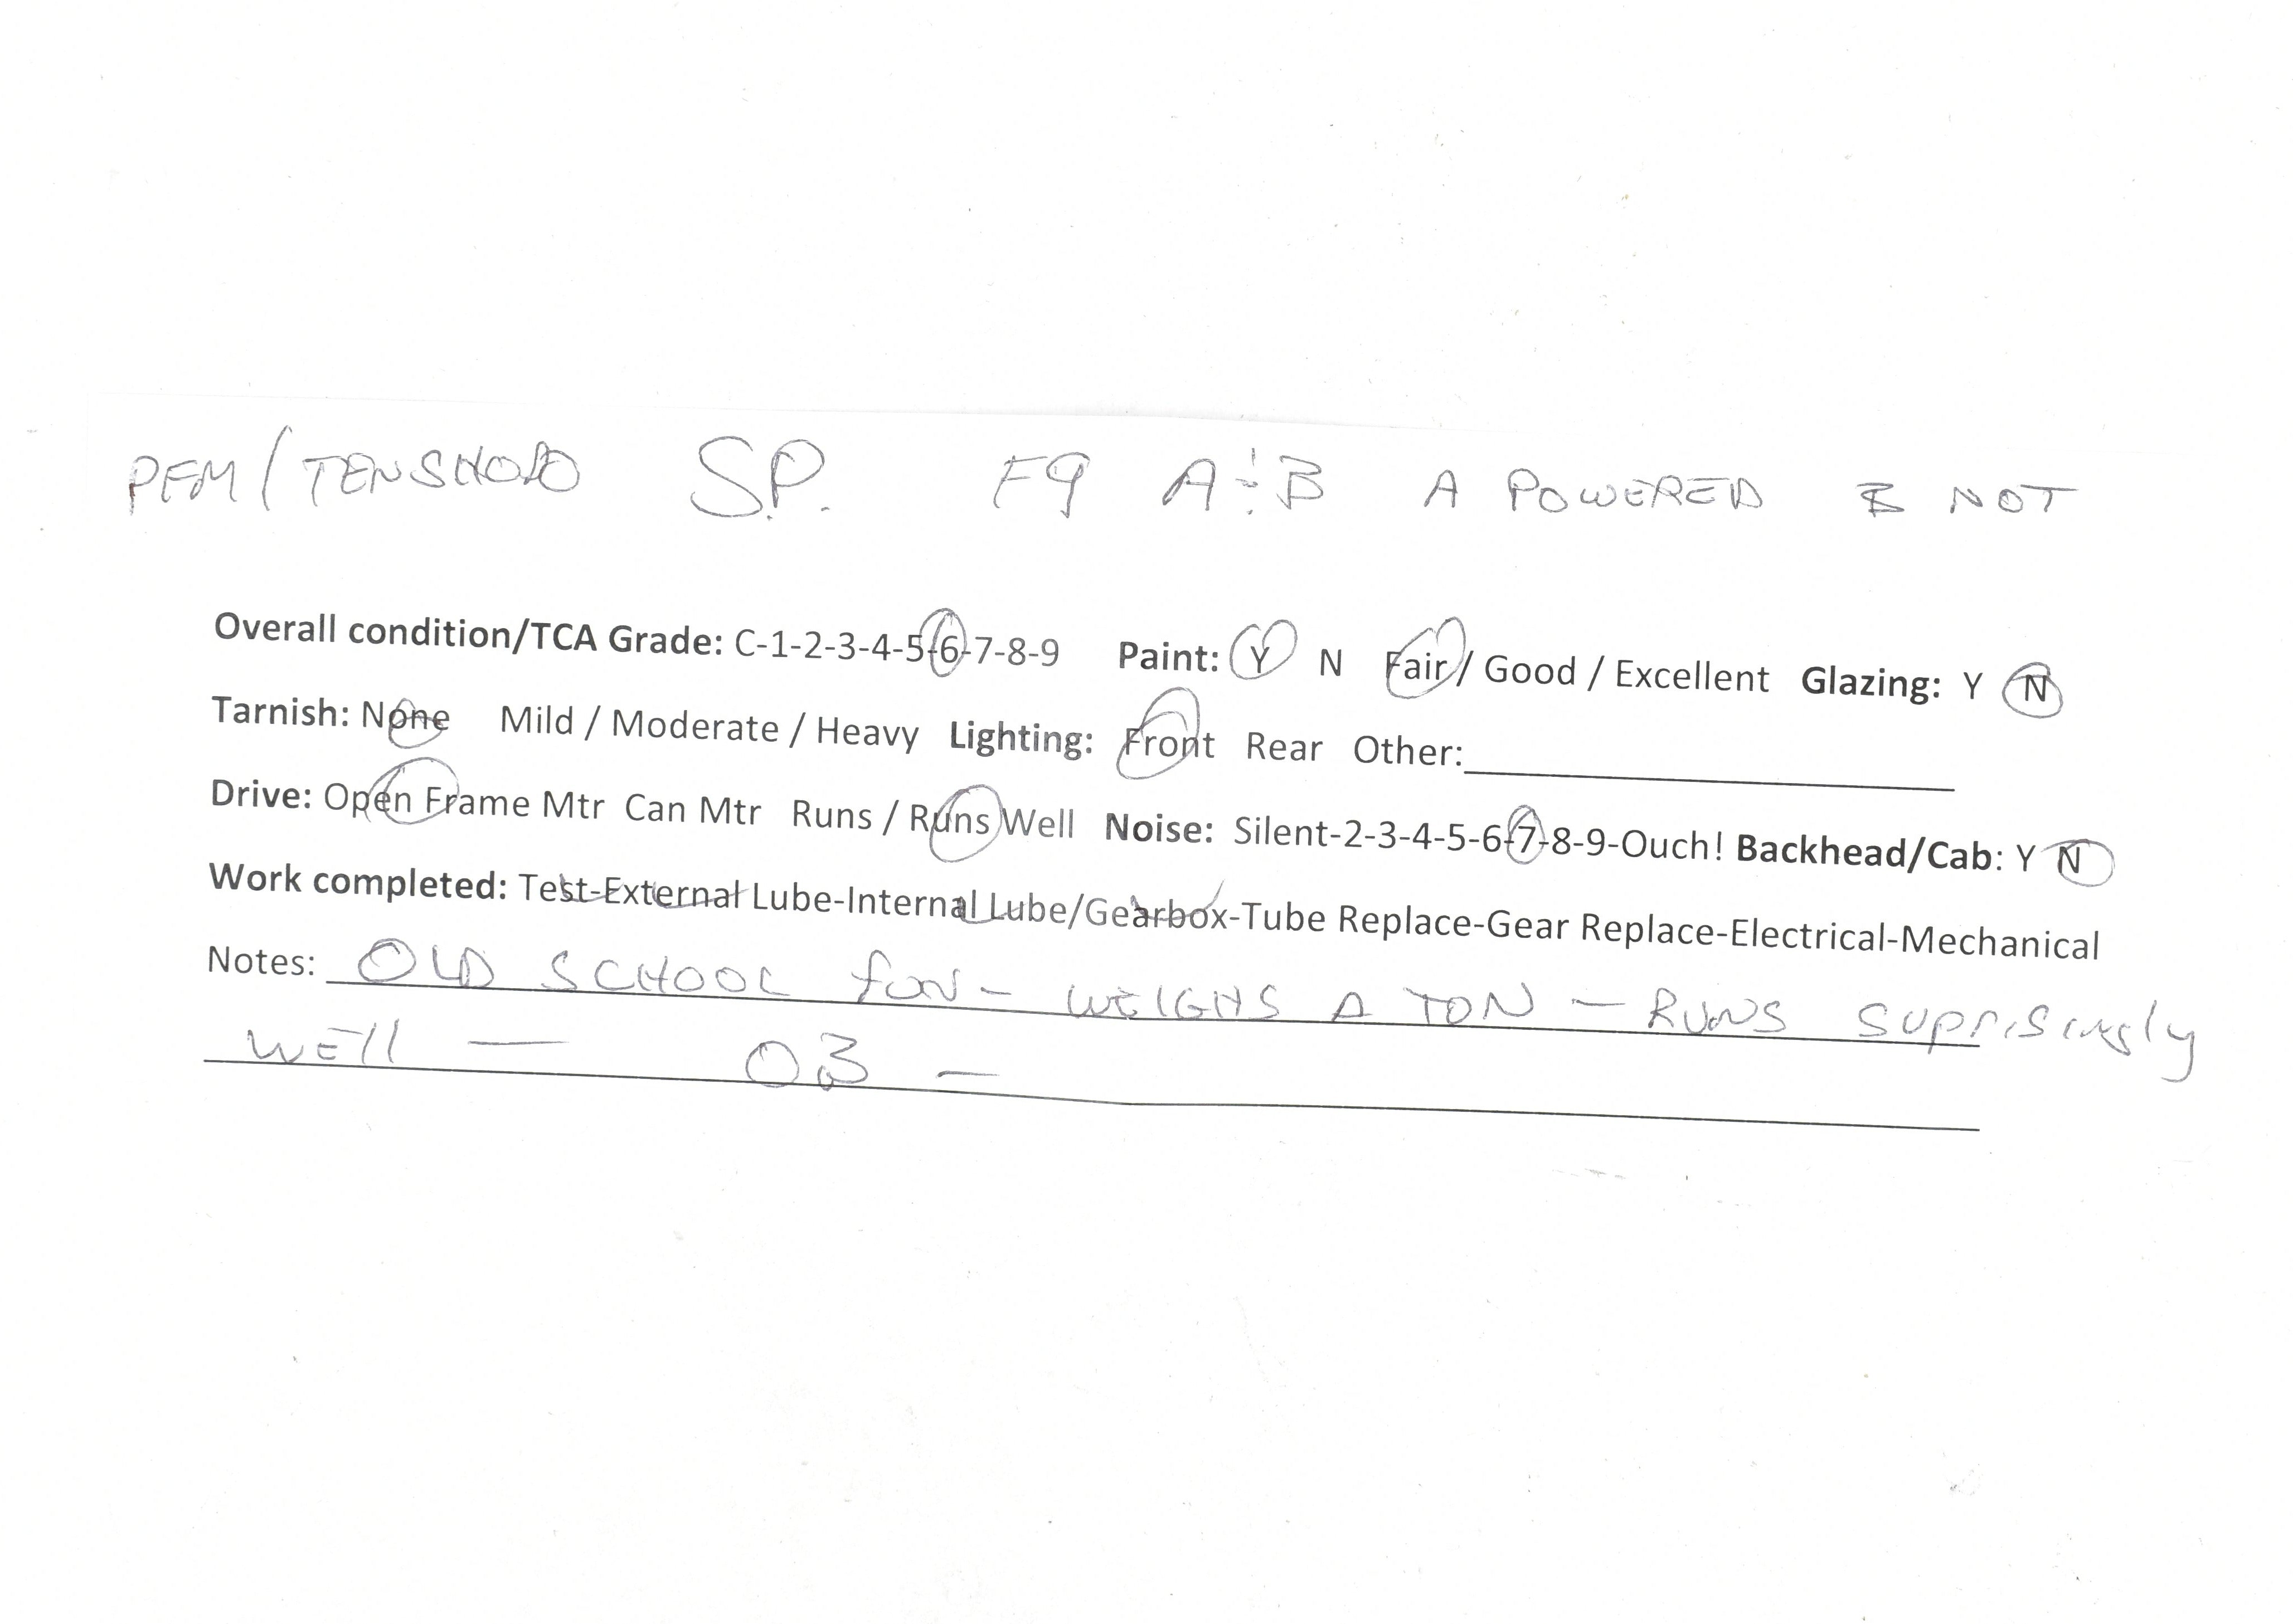 PFM/TENSHODO S.P. F9 A&B A POWERED B NOT
Overall condition/TCA Grade: C-1-2-3-4-5-6-7-8-9 Paint: Y N Fair / Good / Excellent Glazing: Y N
Tarnish: None Mild / Moderate / Heavy Lighting: Front Rear Other:
Drive: Open Frame Mtr Can Mtr Runs / Runs Well Noise: Silent-2-3-4-5-6-7-8-9-Ouch! Backhead/Cab: Y N
Work completed: Test-External Lube-Internal Lube/Gearbox-Tube Replace-Gear Replace-Electrical-Mechanical
Notes: OLD SCHOOL fUN - WEIGHS A TON - RUNS SUPRISINGLY
WEll - OB -